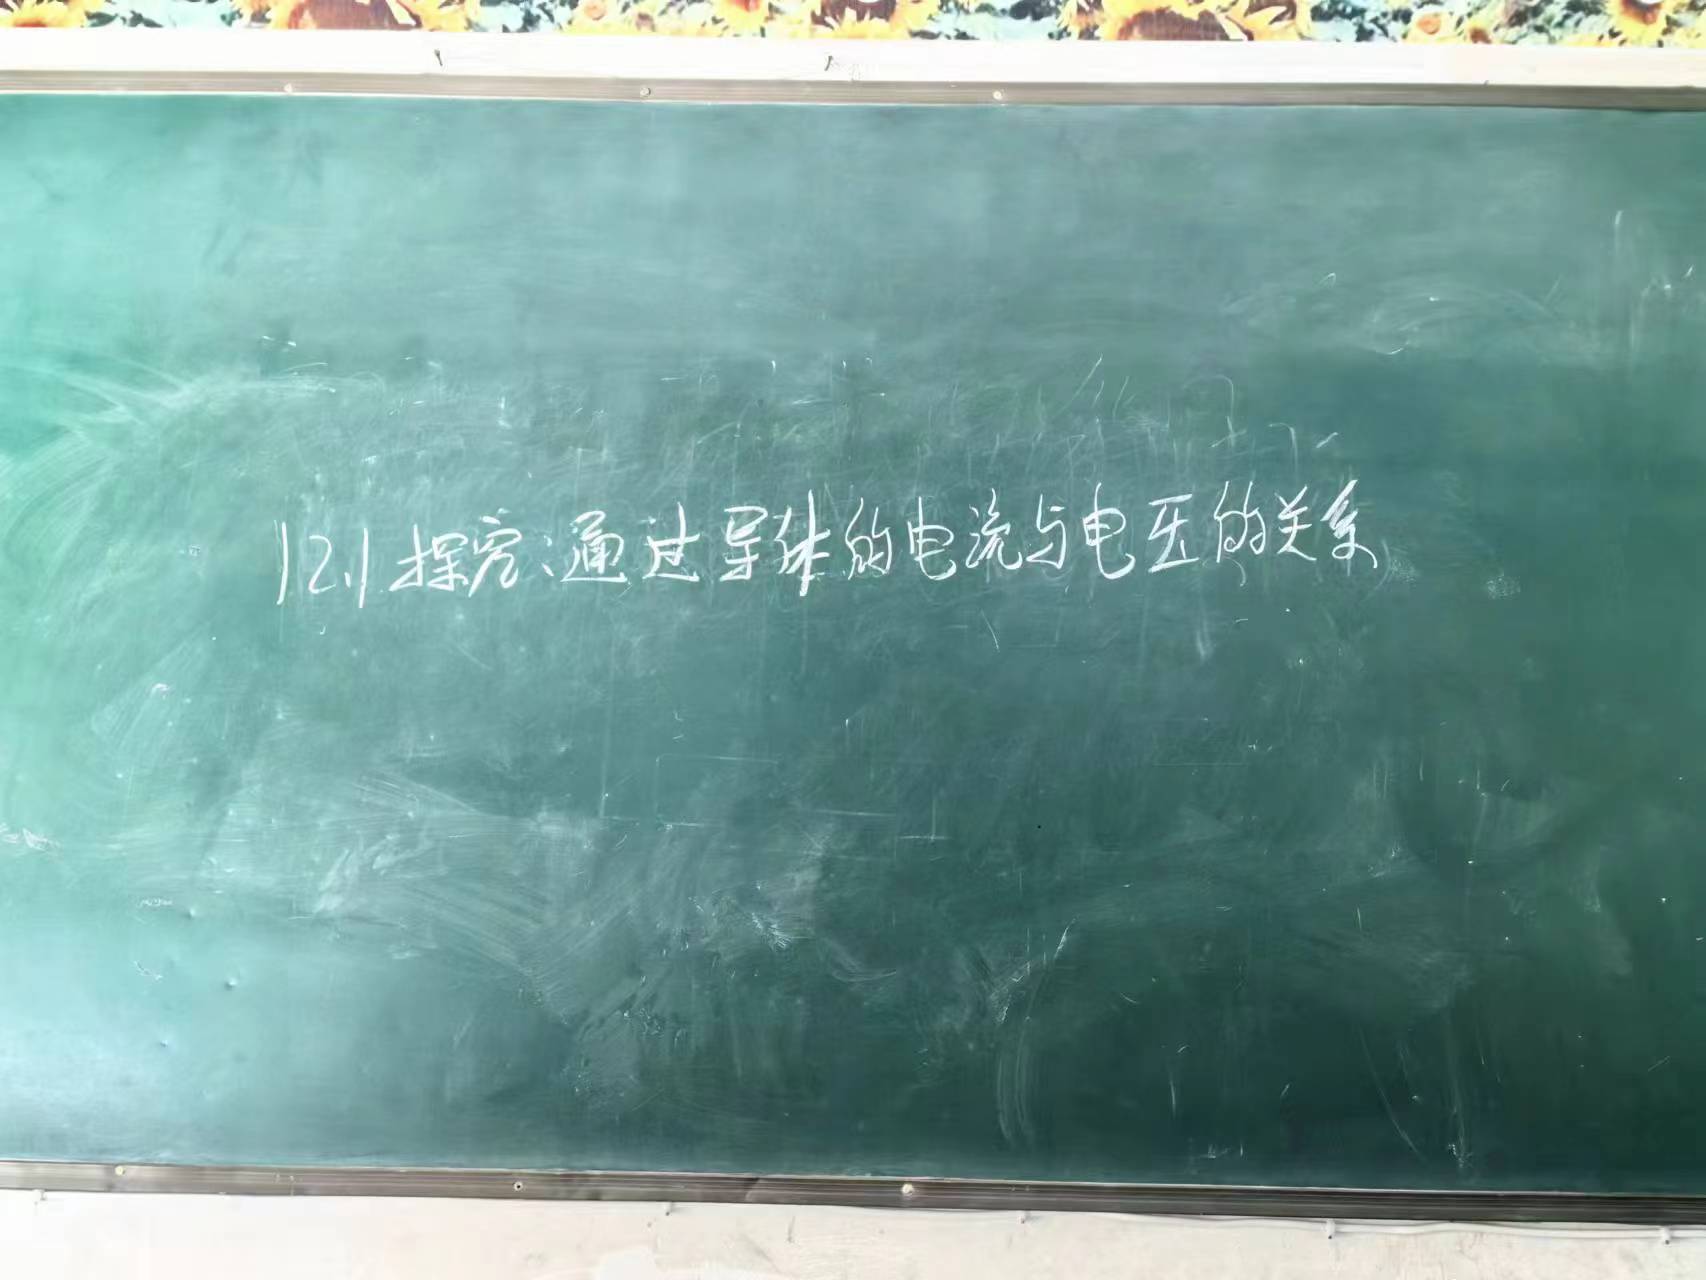 12.1 探究：通过导体的电流与电压的关系